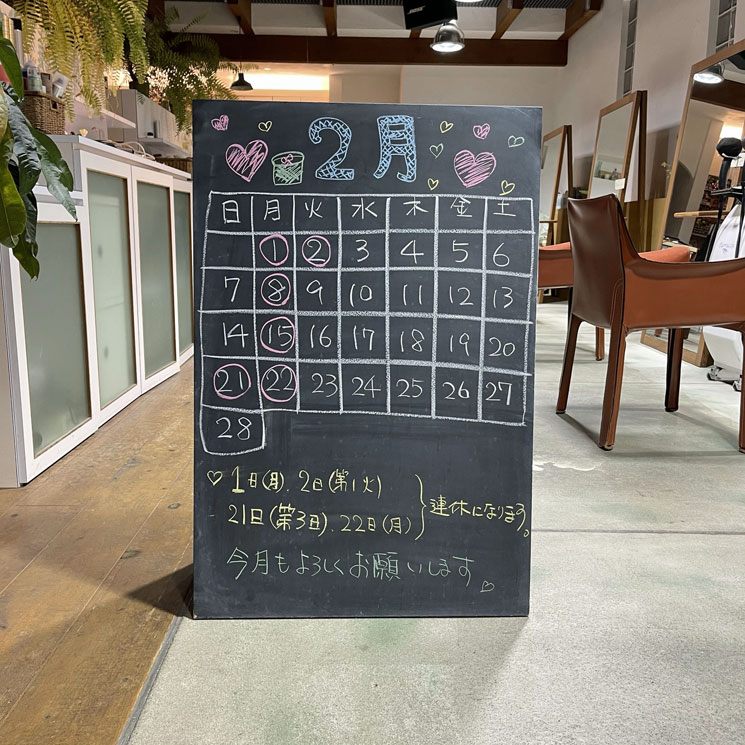 BOSE
2月
日 月 火 水 木 金 土
1 2 3 4 5 6
7 8 9 10 11 12 13
14 15 16 17 18 19 20
21 22 23 24 25 26 27
28
♡ 1日(月)、2日(第1火)
21日(第3日)、22日(月) } 連休になります。
今月もよろしくお願いします♡